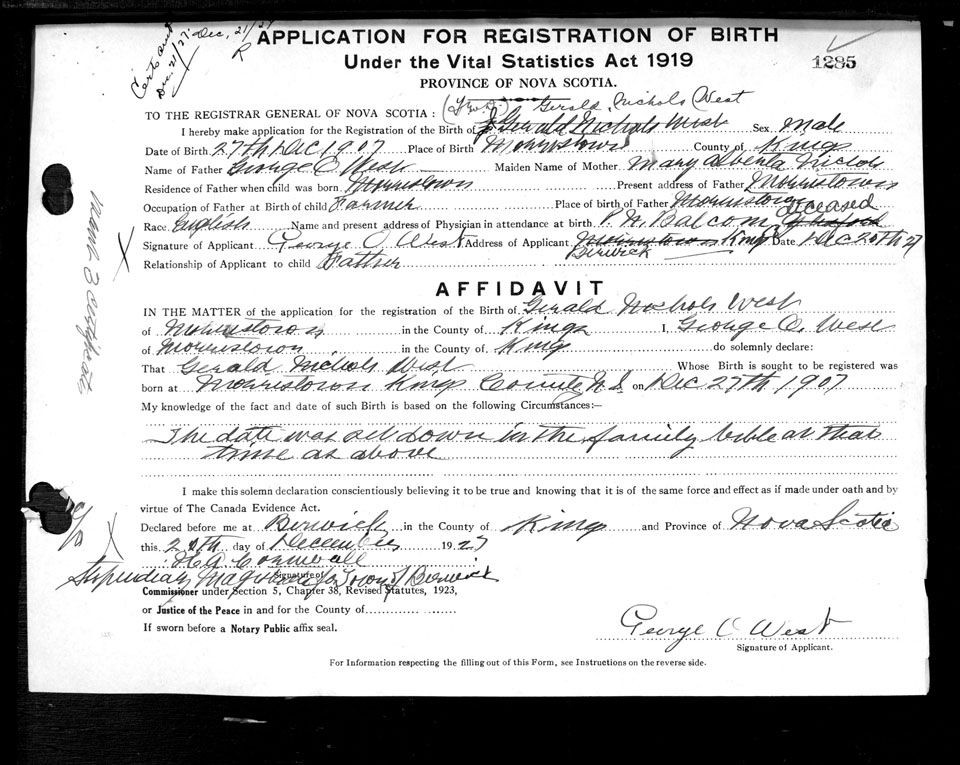 Dec. 21/27
Dec. 21/27
R
APPLICATION FOR REGISTRATION OF BIRTH
Under the Vital Statistics Act 1919
PROVINCE OF NOVA SCOTIA.
1285
Gerald Nichols West
TO THE REGISTRAR GENERAL OF NOVA SCOTIA:
I hereby make application for the Registration of the Birth of Gerald Nichols West Sex Male
Date of Birth 27th Dec 1907 Place of Birth Morristown County of Kings
Name of Father George O West Maiden Name of Mother Mary Alberta Nichols
Residence of Father when child was born Morristown Present address of Father Morristown
Occupation of Father at Birth of child Farmer Place of birth of Father Morristown
Race English Name and present address of Physician in attendance at birth P. N. Balcom deceased
Signature of Applicant George O. West Address of Applicant Morristown Kings Date Dec 20th 27
Berwick
Relationship of Applicant to child Father
AFFIDAVIT
IN THE MATTER of the application for the registration of the Birth of Gerald Nichols West
of Morristown in the County of Kings I, George O. West
of Morristown in the County of Kings do solemnly declare:
That Gerald Nichols West Whose Birth is sought to be registered was
born at Morristown Kings County N.S. on Dec 27th 1907
My knowledge of the fact and date of such Birth is based on the following Circumstances:—
The date was set down in the family bible at that
time as above
I make this solemn declaration conscientiously believing it to be true and knowing that it is of the same force and effect as if made under oath and by
virtue of The Canada Evidence Act.
Declared before me at Berwick in the County of Kings and Province of Nova Scotia
this 20th day of December 1927
H. A. Cornwall
Stipendiary Magistrate for Town of Berwick
Signature of
Commissioner under Section 5, Chapter 38, Revised Statutes, 1923,
or Justice of the Peace in and for the County of
If sworn before a Notary Public affix seal.
George O West
Signature of Applicant.
For Information respecting the filling out of this Form, see Instructions on the reverse side.